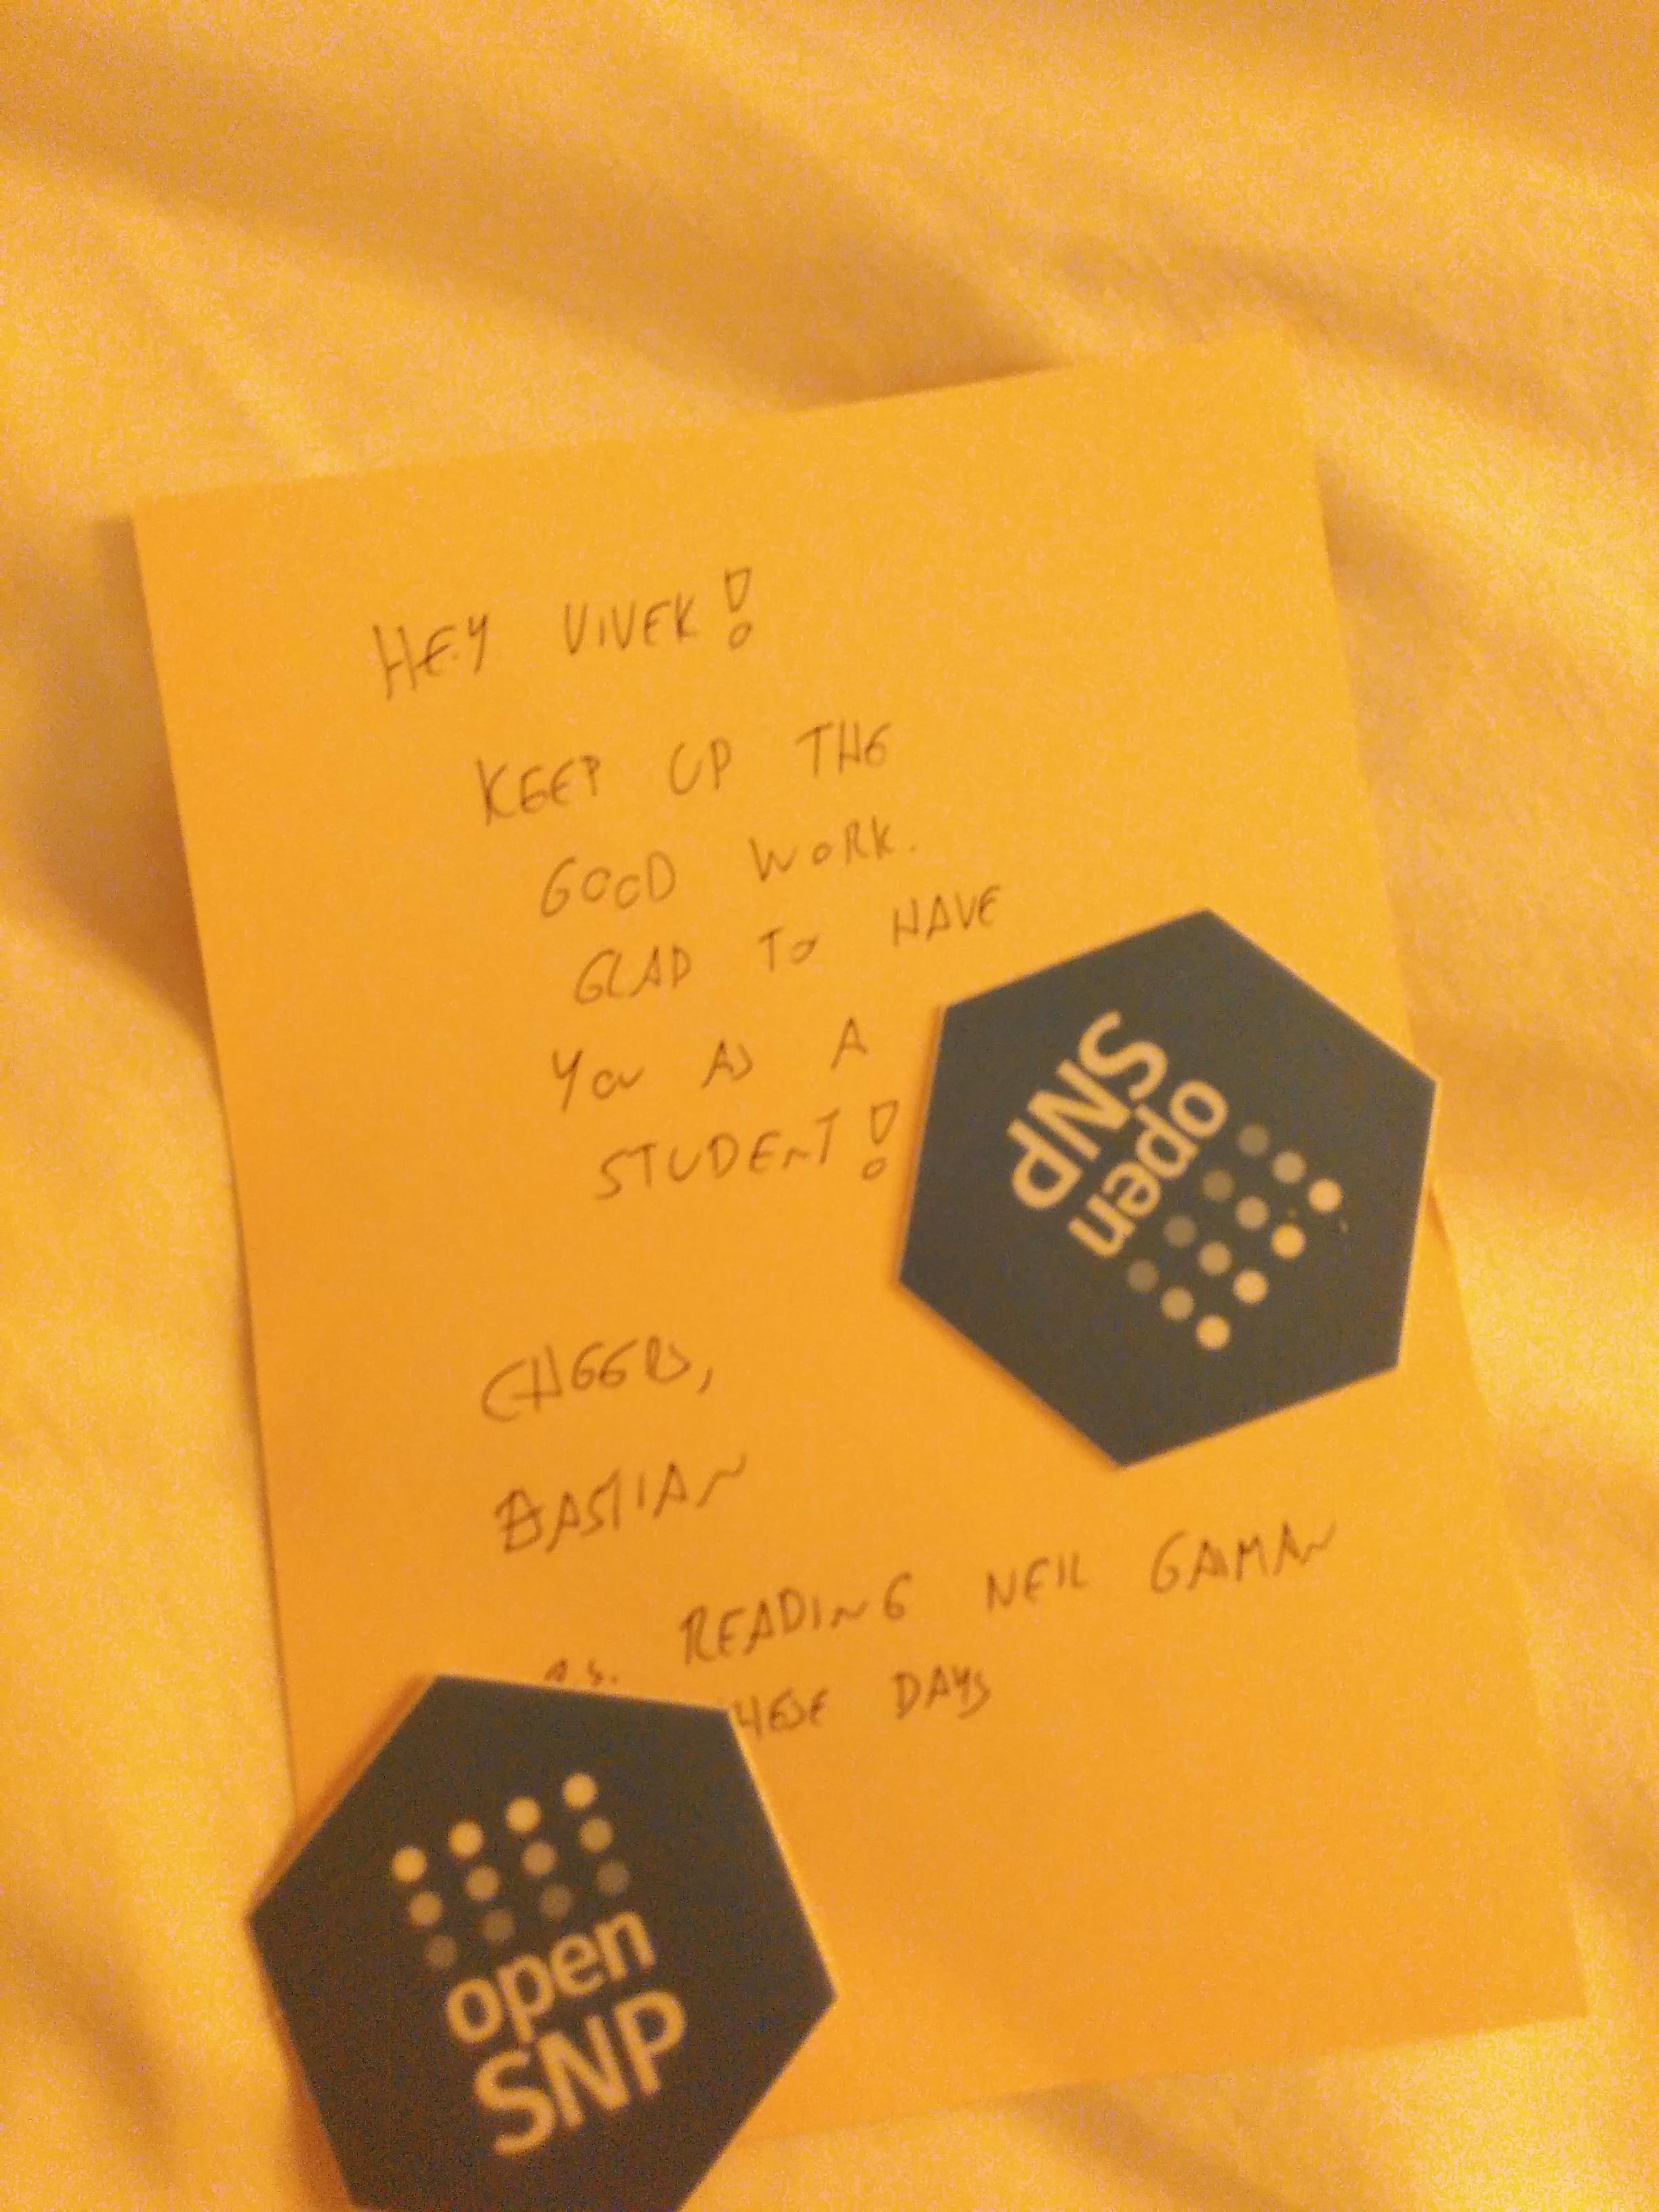 HEY VIVEK!
KEEP UP THE
GOOD WORK.
GLAD TO HAVE
YOU AS A
STUDENT!
open
SNP
CHEERS,
BASTIAN
P.S. READING NEIL GAIMAN
THESE DAYS
open
SNP